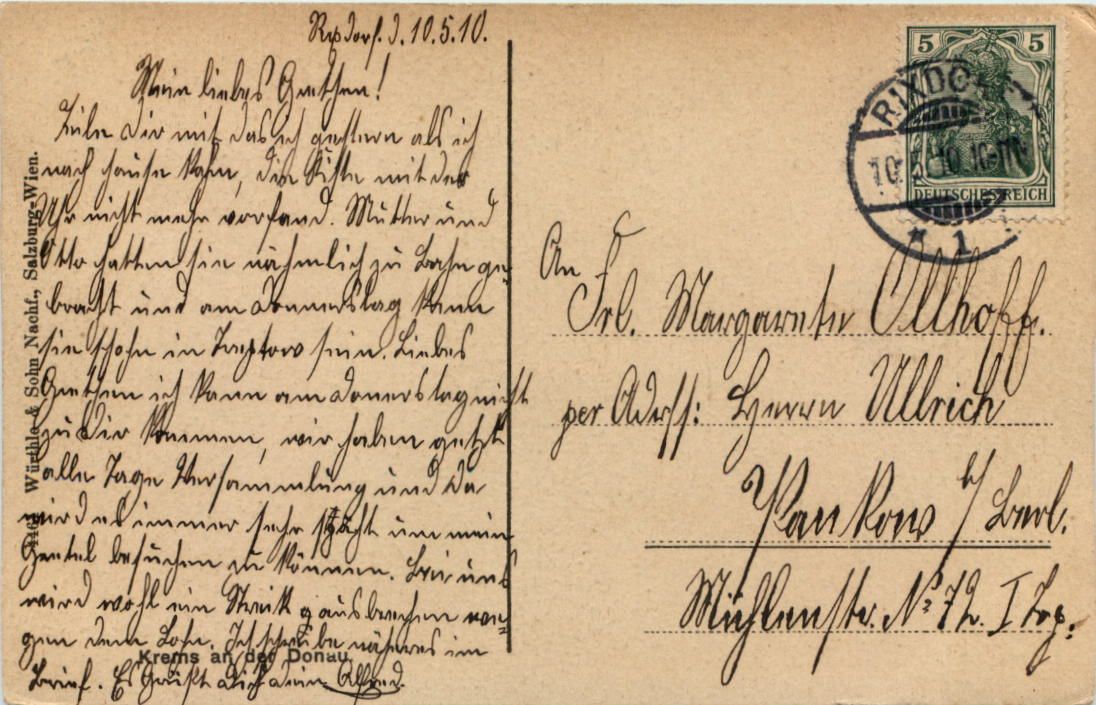 Rixdorf. d. 10.5.10.
Mein liebes Grethen!
Teile dir mit das ich gestern als ich
nach hause kahm, die Kiste mit der
Uhr nicht mehr vorfand. Mutter und
Otto hatten sie nähmlich zu Bahn ge-
bracht und am Donnerstag kann
sie schohn in Treptow sein. Liebes
Grethen ich kann am Donerstag nicht
zu dir kommen, wir haben getzt
alle Tage Versammlung und da
wird es immer sehr spächt um mein
besuchen zu können. Bei uns
wird wohl ein Streik ausbrechen we-
gen dem Lohn. Ich schreibe näheres im
Brief. Es Grüßt dich dein Alfred.
Krems an der Donau.
Würthle & Sohn Nachf., Salzburg-Wien.
5 5
DEUTSCHES REICH
RIXDORF
10.5.10.10-11N
* 1
An
Frl. Margarete Ollhoff.
per Adress: Herrn Ullrich
Pankow b/ Berl.
Mühlenstr. No 72. I Trp.